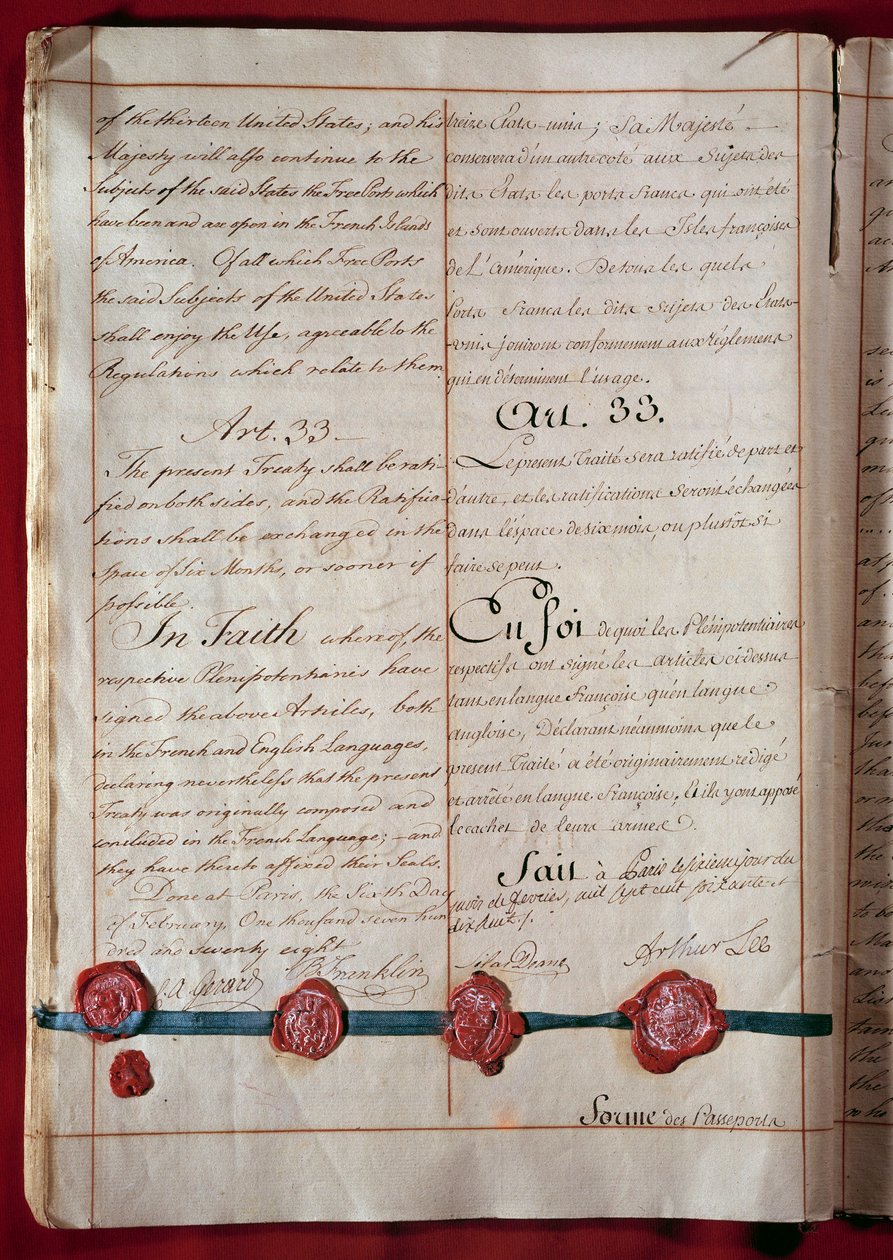 of the thirteen United States; and his
Majesty will also continue to the
Subjects of the said States the Free Ports which
have been and are open in the French Islands
of America. Of all which Free Ports
the said Subjects of the United States
shall enjoy the Use, agreeable to the
Regulations which relate to them.
Art. 33
The present Treaty shall be rati-
fied on both sides, and the Ratifica-
tions shall be exchanged in the
space of Six Months, or sooner if
possible.
In Faith whereof, the
respective Plenipotentiaries have
signed the above Articles, both
in the French and English Languages,
declaring nevertheless that the present
Treaty was originally composed and
concluded in the French Language; and
they have thereto affixed their Seals.
Done at Paris, the Sixth Day
of February, One thousand seven hun
dred and seventy eight
C. A. Gerard
B Franklin
treize Etats-unis; Sa Majesté
conservera d'un autre coté aux Sujets des
dits Etats les ports francs qui ont été
et sont ouverts dans les Isles françoises
de L'Amérique. De tous les quels
Ports Francs les dits Sujets des Etats
-unis jouiront conformement aux Réglemens
qui en déterminent l'usage.
Art. 33.
Le present Traité sera ratifié de part et
d'autre, et les ratifications seront échangées
dans l'éspace de six mois, ou plustôt si
faire se peut.
En foi de quoi les Plénipotentiaires
respectifs ont signé les articles ci dessus
tant en langue Françoise qu'en langue
Angloise, Déclarant néanmoins que le
present Traité a été originairement redigé
et arrêté en langue Françoise, Et ils y ont apposé
le cachet de leurs armes.
Fait à Paris le sixieme jour du
mois de fevrier, mil sept cent soixante et
dix huit.
Silas Deane
Arthur Lee
Forme des Passeports